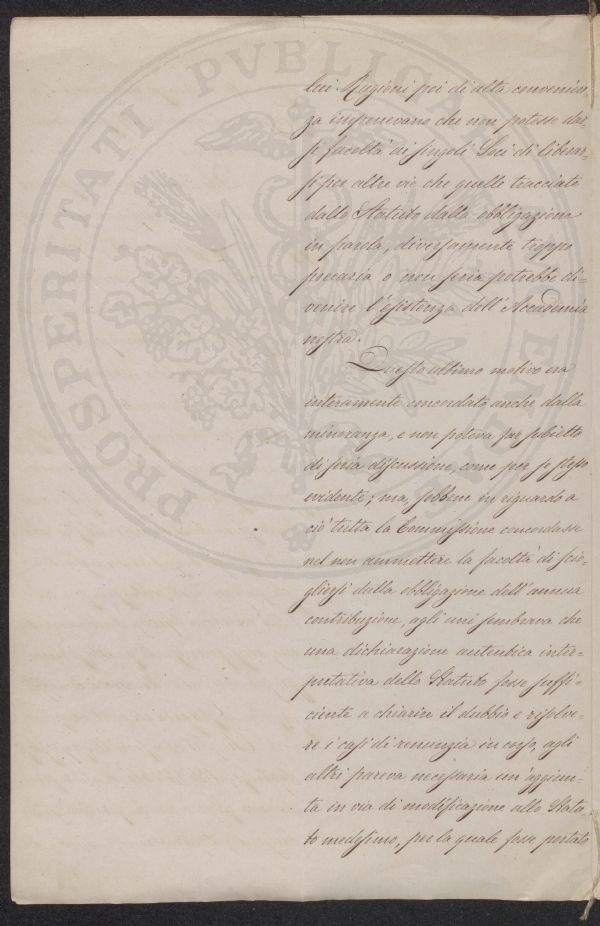 PROSPERITATI PUBLICAE AUGENDAE
lui. Ragioni poi di alta convenien-
za imponevano che non potesse dar-
si facoltà ai singoli Soci di liberar-
si per altre vie che quelle tracciate
dallo Statuto dalla obbligazione
in parola, diversamente troppo
precaria o non seria potrebbe di-
venire l'esistenza dell'Accademia
nostra.
Questo ultimo motivo era
interamente concordato anche dalla
minoranza, e non poteva far subietto
di seria discussione, come per se stesso
evidente; ma, sebbene in riguardo a
ciò tutta la Commissione concordasse
nel non ammettere la facoltà di scio-
gliersi dalla obbligazione dell'annua
contribuzione, agli uni sembrava che
una dichiarazione autentica inter-
pretativa dello Statuto fosse suffi-
ciente a chiarire il dubbio e risolve-
re i casi di renunzia in corso, agli
altri pareva necessaria un'aggiun-
ta in via di modificazione allo Statu-
to medesimo, per la quale fosse portato